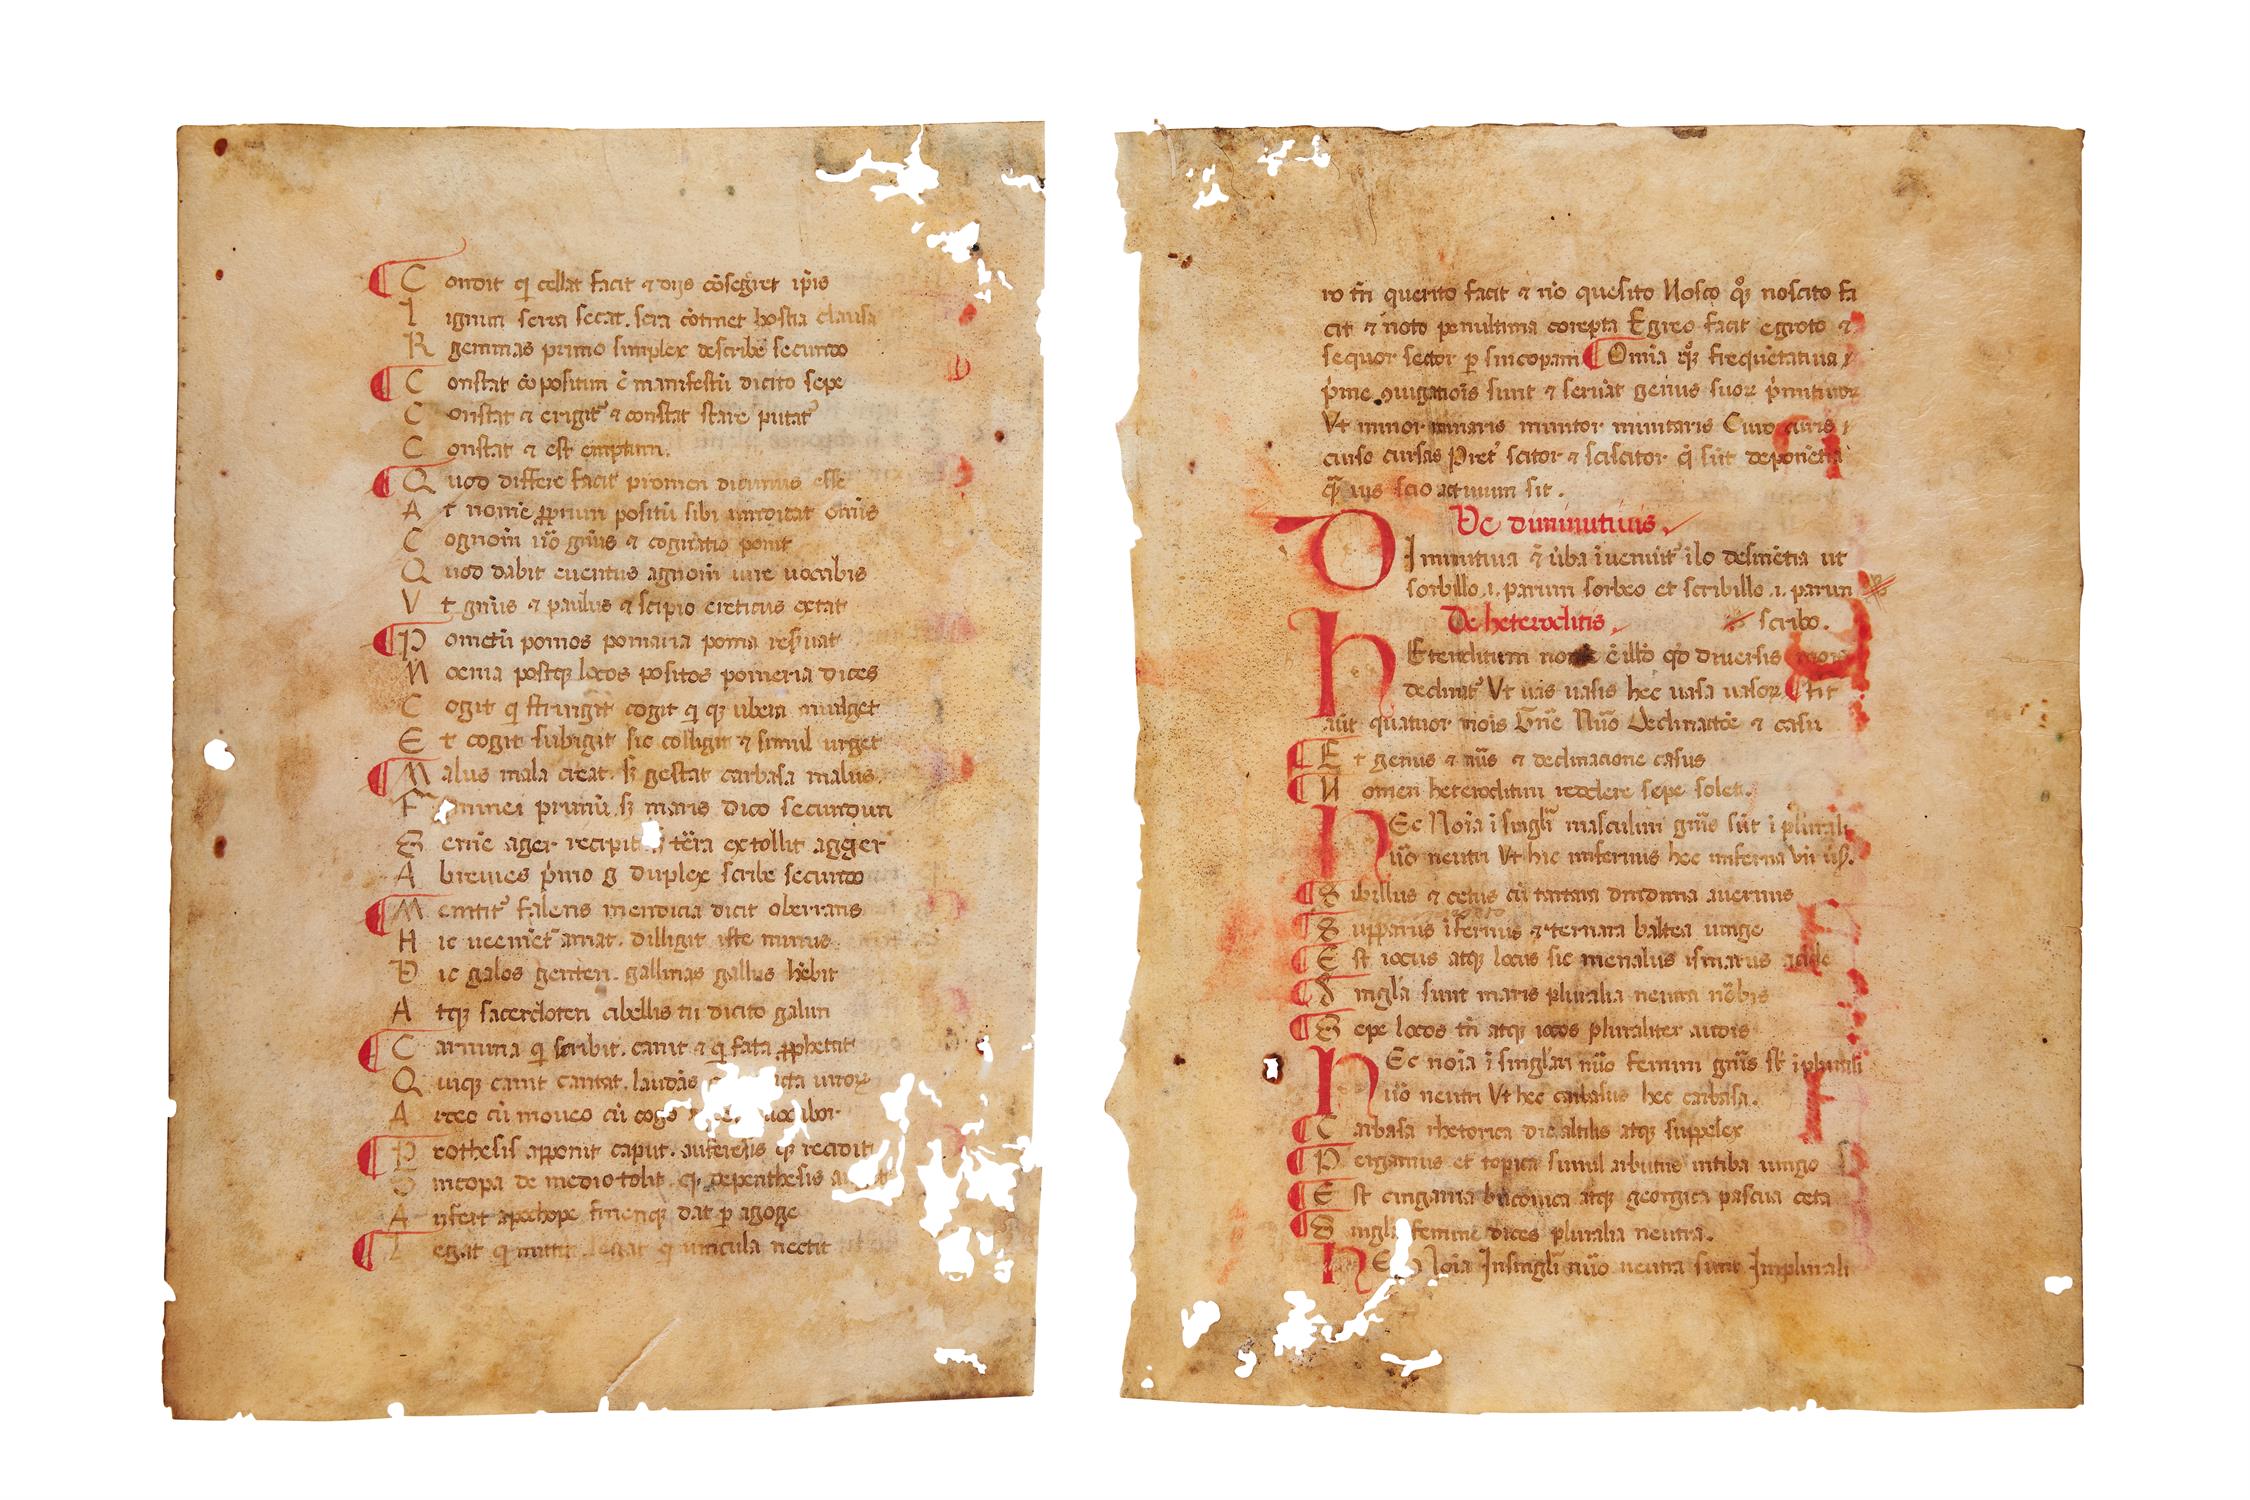 C ondit q̄ cellat facit & diis cōsec͛ret ip̄is
L ignum serra secat. sera cōtinet hostia clausa
R gemmas primo simplex describe secundo
C onstat cōpositum ē manifestū dicito sepe
C onstat & erigit᷑ & constat stare putat᷑
C onstat & est emptum.
Q uod differe facit pronomen dicimus esse
A t nomē ꝓprium positū sibi uendicat omnis
C ognom̄ ūo gn̄us & cognatio ponit
Q uod dabit euentus agnom̄ iure uocabis
V t gn̄us & paulus & scipio creticus extat
P ometū pomos pomaria poma res͛uat
M oenia postq; locos positos pomeria dices
C ogit q̄ stringit cogit q̄ q; ubera mulget
E t cogit subigit sic colligit & simul urget
M alus mala creat. s; gestat carbasa malus.
F eminei primū. s; maris dico secundum
S emē ager recipit tēra extollit agger
A breuies p̄mo g duplex scribe secundo
M entit᷑ fallens mendicia dicit oberrans
H ic ueem̄et᷑ amat. dilligit iste minus
D ic galos gentem. gallinas gallus hēbit
A tq; sacerdotem cibellis tū dicito galum
C armina q̄ scribit. canit & q̄ fata ꝓphetat
Q uiq; canit cantat. laudās uiror̄
A rceo cū moueo cū cogo uocabor
P rothesis apponit caput. auferesis q; recidit
S incopa de medio tolit. q; epenthesis
A ufert apochope finemq; dat p agoge
L egat q̄ mittit legat q̄ uincula nectit
ro tn̄ querito facit & nō quesito Nosco qq̊; noscito fa
cit & noto penultima corepta Egreo facit egroto &
sequor sector p sincopam Omīa qq̊; frequētatiua
p̄me ꝯiugatiōis sunt & seruāt genus suor p̄mitiuor
Vt minor minaris minitor minitaris Curo curis
curso cursas Pret᷑ scitor & sciscitor q̄ sūt deponētia
q̄uis scio actiuum sit.
De diminutiuis.
D Iminutiua ū̄ba īueniūt᷑ ilo desinētia ut
sorbillo .i. parum sorbeo et scribillo .i. parum
De heteroclitis. scribo.
H Eteroclitum nomē ē illō qd̄ diuersis
declinat᷑ Vt uas uasis hec uasa uasor Fit
aūt quatuor mōis Gn̄e Nūo Declinactōe & casu
E t genus & nūs & declinacione casus
N omen heteroclitum reddere sepe solet.
H Ec Noīa ī singl̄i masculini gn̄is sūt ī plurali
ūo neutri Vt hic infernus hec inferna Vn̄ ūs.
S ibillus & cetus cū tartara dindima auernus
S upparus īfernus & ternara baltea iunge
E st iocus atq; locus sic menalus ismarus adde
S ingl̄a sunt maris pluralia neutra nōbis
S epe locos tn̄ atq; iocos pluraliter audis
H Ec noīa ī singl̄ari nūo femini gn̄is st̄ ī plurali
ūo neutri Vt hec carbasus hec carbasa.
C arbasa rhetorica dic altilis atq; suppelex
P ergamus et topica simul arbutus intiba iungo
E st cingaria bucolica atq; georgica pascua ceta
S ingl̄i femine dices pluralia neutra.
H Ec Noīa In singl̄i nūo neutra sunt In plurali